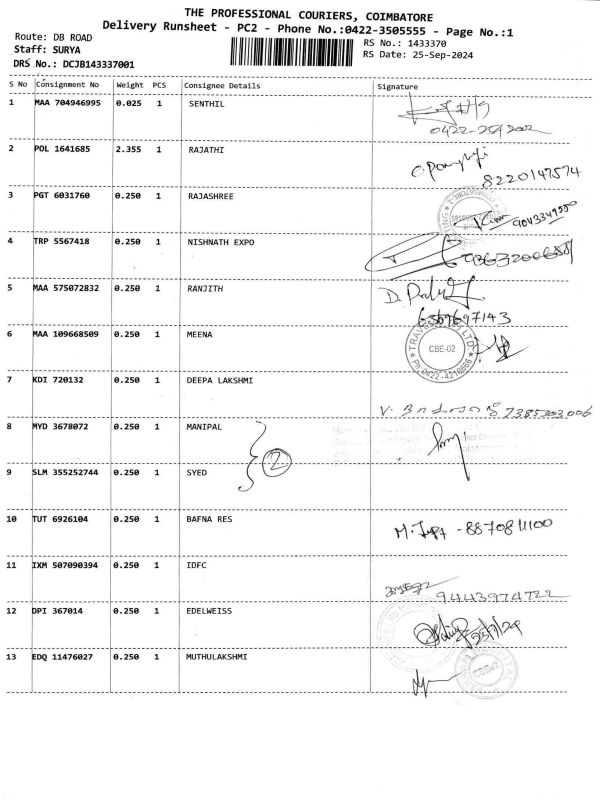 THE PROFESSIONAL COURIERS, COIMBATORE
Delivery Runsheet - PC2 - Phone No.:0422-3505555 - Page No.:1
Route: DB ROAD
RS No.: 1433370
Staff: SURYA
RS Date: 25-Sep-2024
DRS No.: DCJB143337001
S No Consignment No Weight PCS Consignee Details Signature
1 MAA 704946995 0.025 1 SENTHIL
2 POL 1641685 2.355 1 RAJATHI
8220147574
3 PGT 6031760 0.250 1 RAJASHREE
4 TRP 5567418 0.250 1 NISHNATH EXPO
5 MAA 575072832 0.250 1 RANJITH
6 MAA 109668509 0.250 1 MEENA
CBE-02
Ph:0422-4210866
7 KDI 720132 0.250 1 DEEPA LAKSHMI
7385303006
8 MYD 3678072 0.250 1 MANIPAL
2
9 SLM 355252744 0.250 1 SYED
10 TUT 6926104 0.250 1 BAFNA RES
8870811100
11 IXM 507090394 0.250 1 IDFC
9443974722
12 DPI 367014 0.250 1 EDELWEISS
13 EDQ 11476027 0.250 1 MUTHULAKSHMI